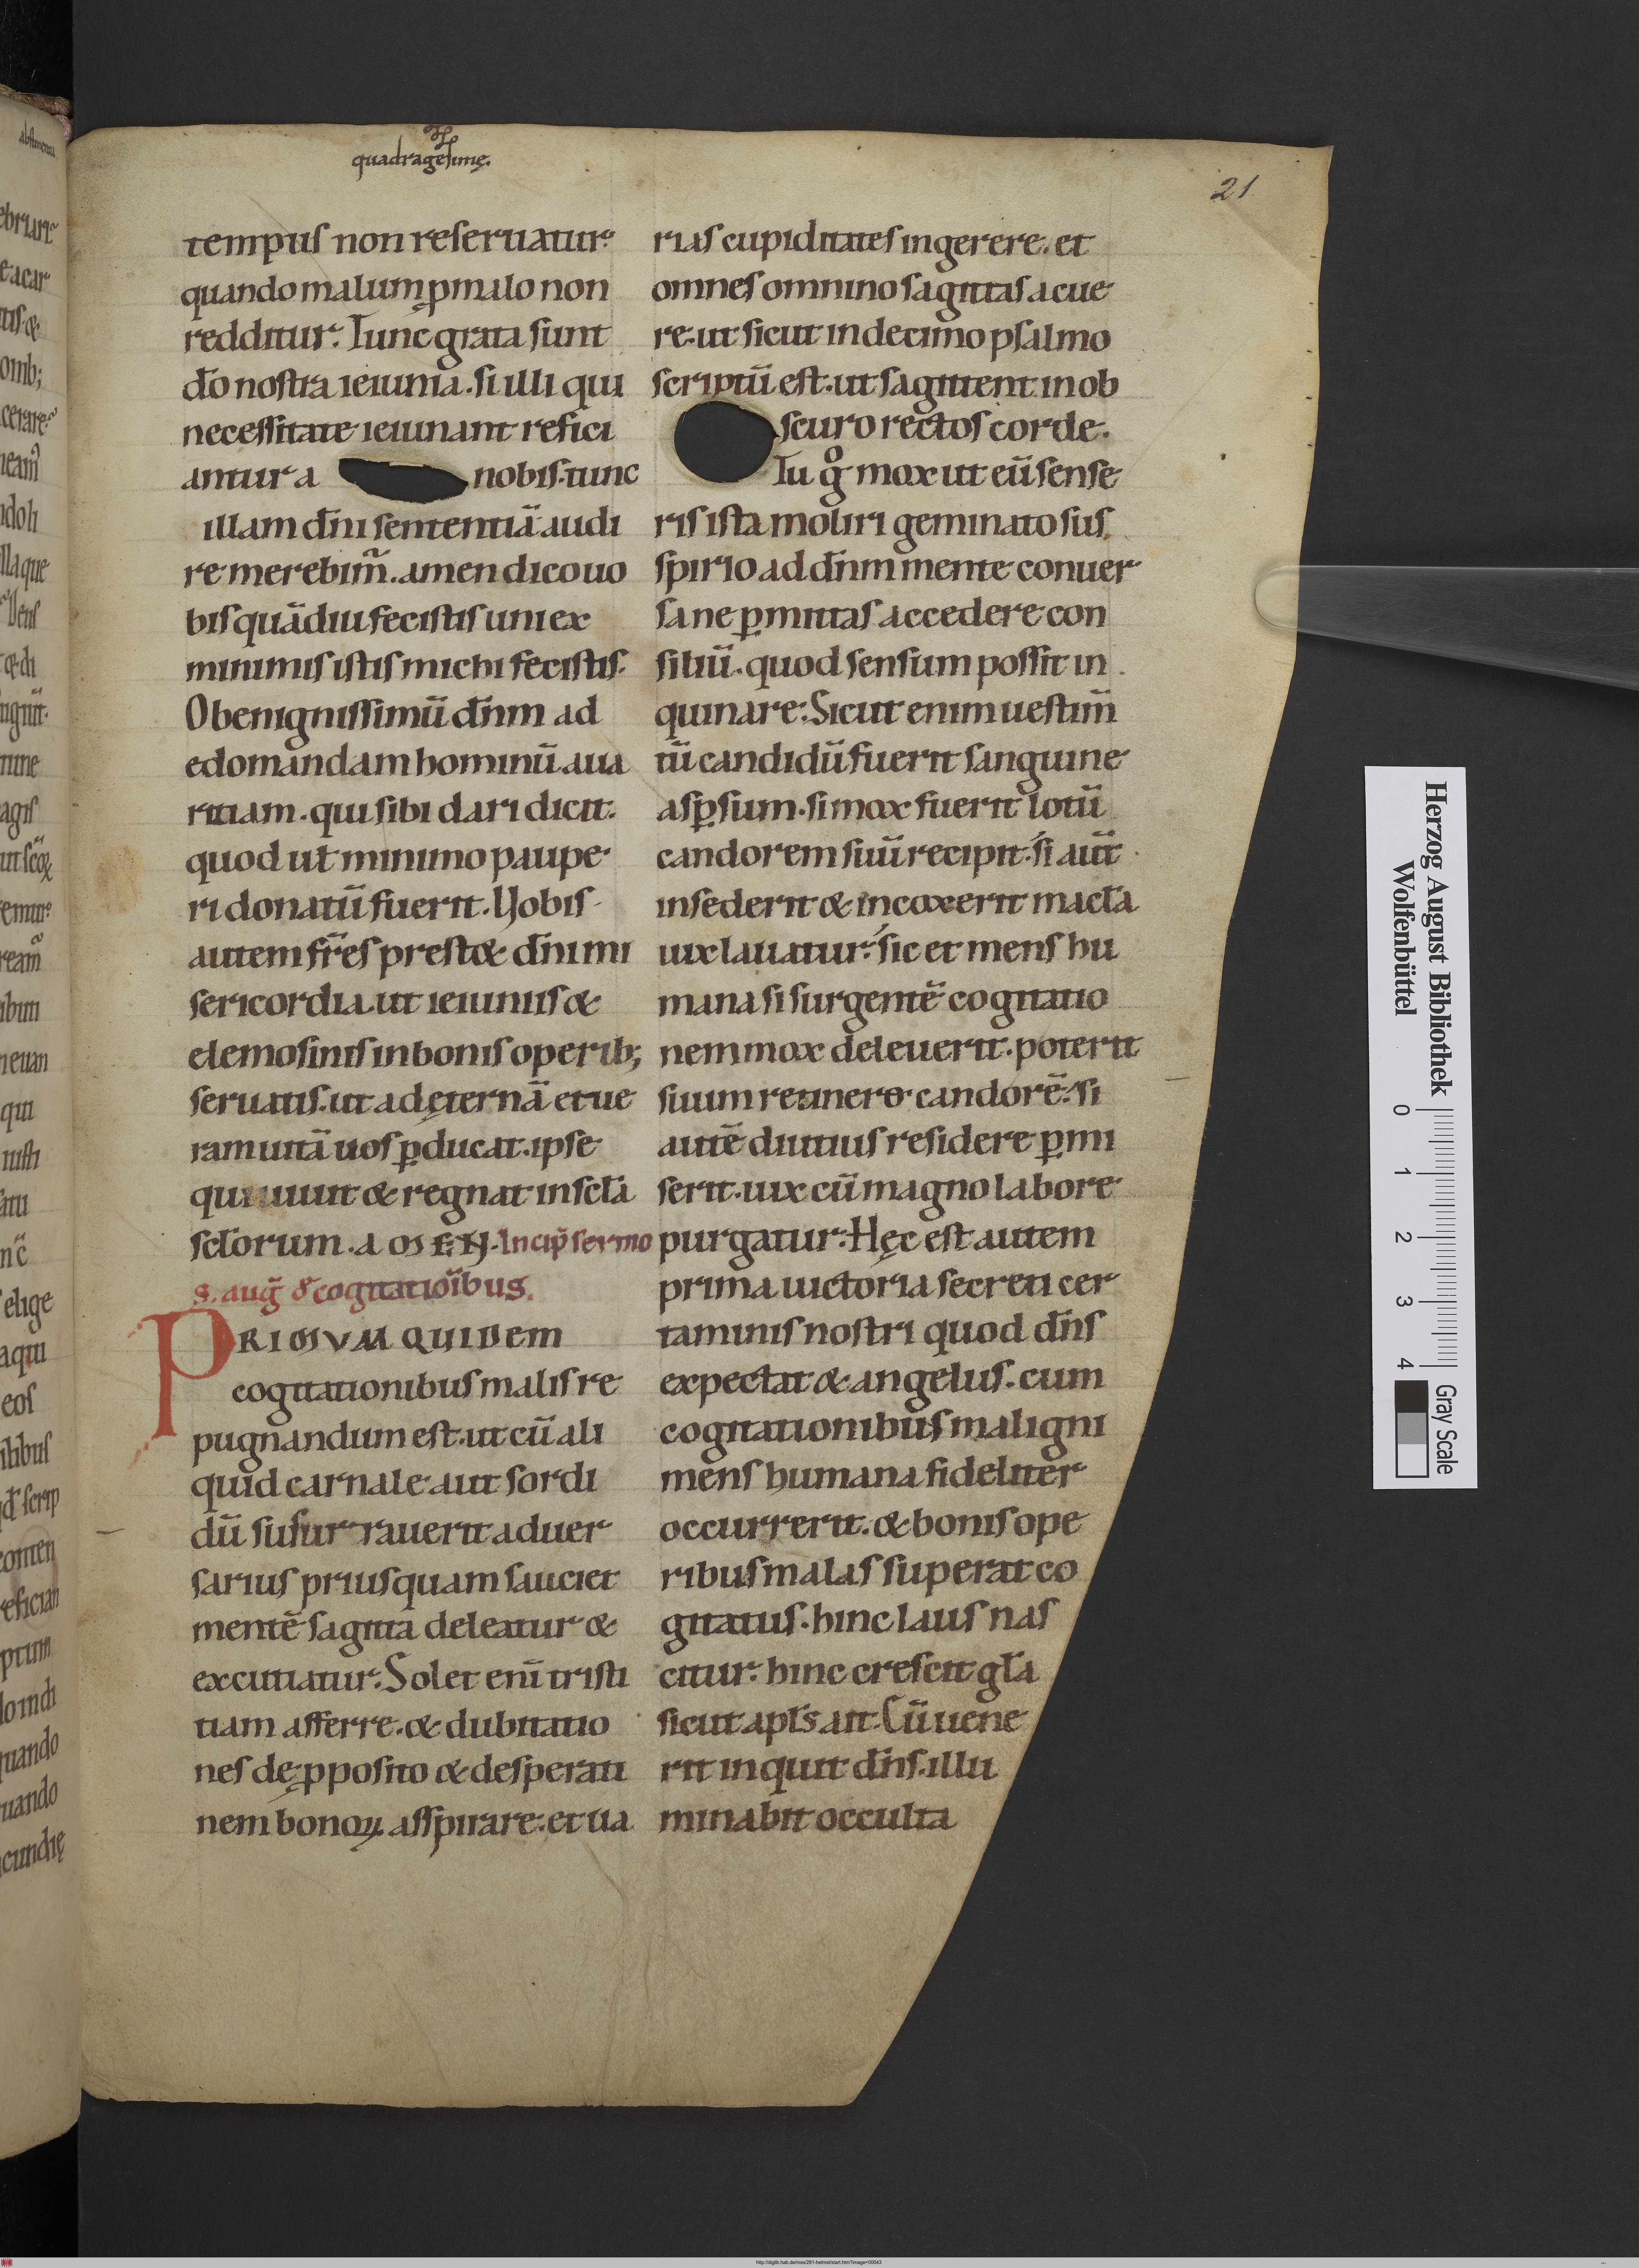 quadragesimę.
21
tempus non reseruatur.
quando malum ꝓ malo non
redditur. Tunc grata sunt
do̅ nostra ieiunia. si illi qui
necessitate ieiunant refici
antur a nobis. tunc
illam dn̅i sententiā audi
re merebim̃. amen dico uo
bis quādiu fecistis uni ex
minimis istis michi fecistis.
O benignissimū dn̅m ad
edomandam hominū aua
ritiam. qui sibi dari dicit.
quod ut minimo paupe
ri donatū fuerit. Nobis
autem fr̅es prestet dn̅i mi
sericordia. ut ieiuniis &
elemosinis in bonis operib;
seruatis. ut ad ęternā et ue
ram uitā uos ꝑducat. ipse
qui uiuit & regnat in scl̅a
scl̅orum. AMEN. Incip̅ sermo
s. aug̅ de cogitatioībus.
PRIMUM QUIDEM
cogitationibus malis re
pugnandum est. ut cū ali
quid carnale aut sordi
dū susurrauerit aduer
sarius priusquam sauciet
mentē sagitta deleatur &
excutiatur. Solet enī tristi
tiam afferre. & dubitatio
nes de ꝓposito & desperati
nem bonoꝝ. asspirare. et ua
rias cupiditates ingerere. et
omnes omnino sagittas acue
re. ut sicut in decimo psalmo
scriptū est. ut sagittent in ob
scuro rectos corde.
Tu gͦ mox ut eū sense
ris ista moliri geminato sus
spirio ad dn̅m mente conuer
sa ne ꝑmittas accedere con
siliū. quod sensum possit in
quinare. Sicut enim uestim̅
tū candidū fuerit sanguine
asꝑsum. si mox fuerit lotū
candorem suū recipit. si aut̅
insederit & incoxerit macl̅a
uix lauatur. sic et mens hu
mana si surgentē cogitatio
nem mox deleuerit. poterit
suum retinere candorē. si
autē diutius residere ꝑmi
serit. uix cū magno labore
purgatur. Hęc est autem
prima uictoria secreti cer
taminis nostri quod dn̅s
expectat & angelus. cum
cogitationibus maligni
mens humana fideliter
occurrerit. & bonis ope
ribus malas superat co
gitatus. hinc laus nas
citur. hinc crescit gl̅a
sicut apl̅s ait. Cū uene
rit inquit dn̅s. illu
minabit occulta
Herzog August Bibliothek
Wolfenbüttel
0 1 2 3 4
Gray Scale
http://diglib.hab.de/mss/281-helmst/start.htm?image=00043